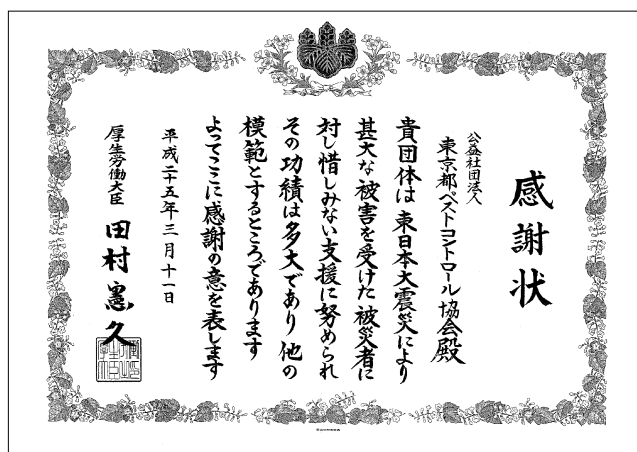 感謝状
公益社団法人
東京都ペストコントロール協会殿
貴団体は東日本大震災により
甚大な被害を受けた被災者に
対し惜しみない支援に努められ
その功績は多大であり他の
模範とするところであります
よってここに感謝の意を表します
平成二十五年三月十一日
厚生労働大臣 田村憲久